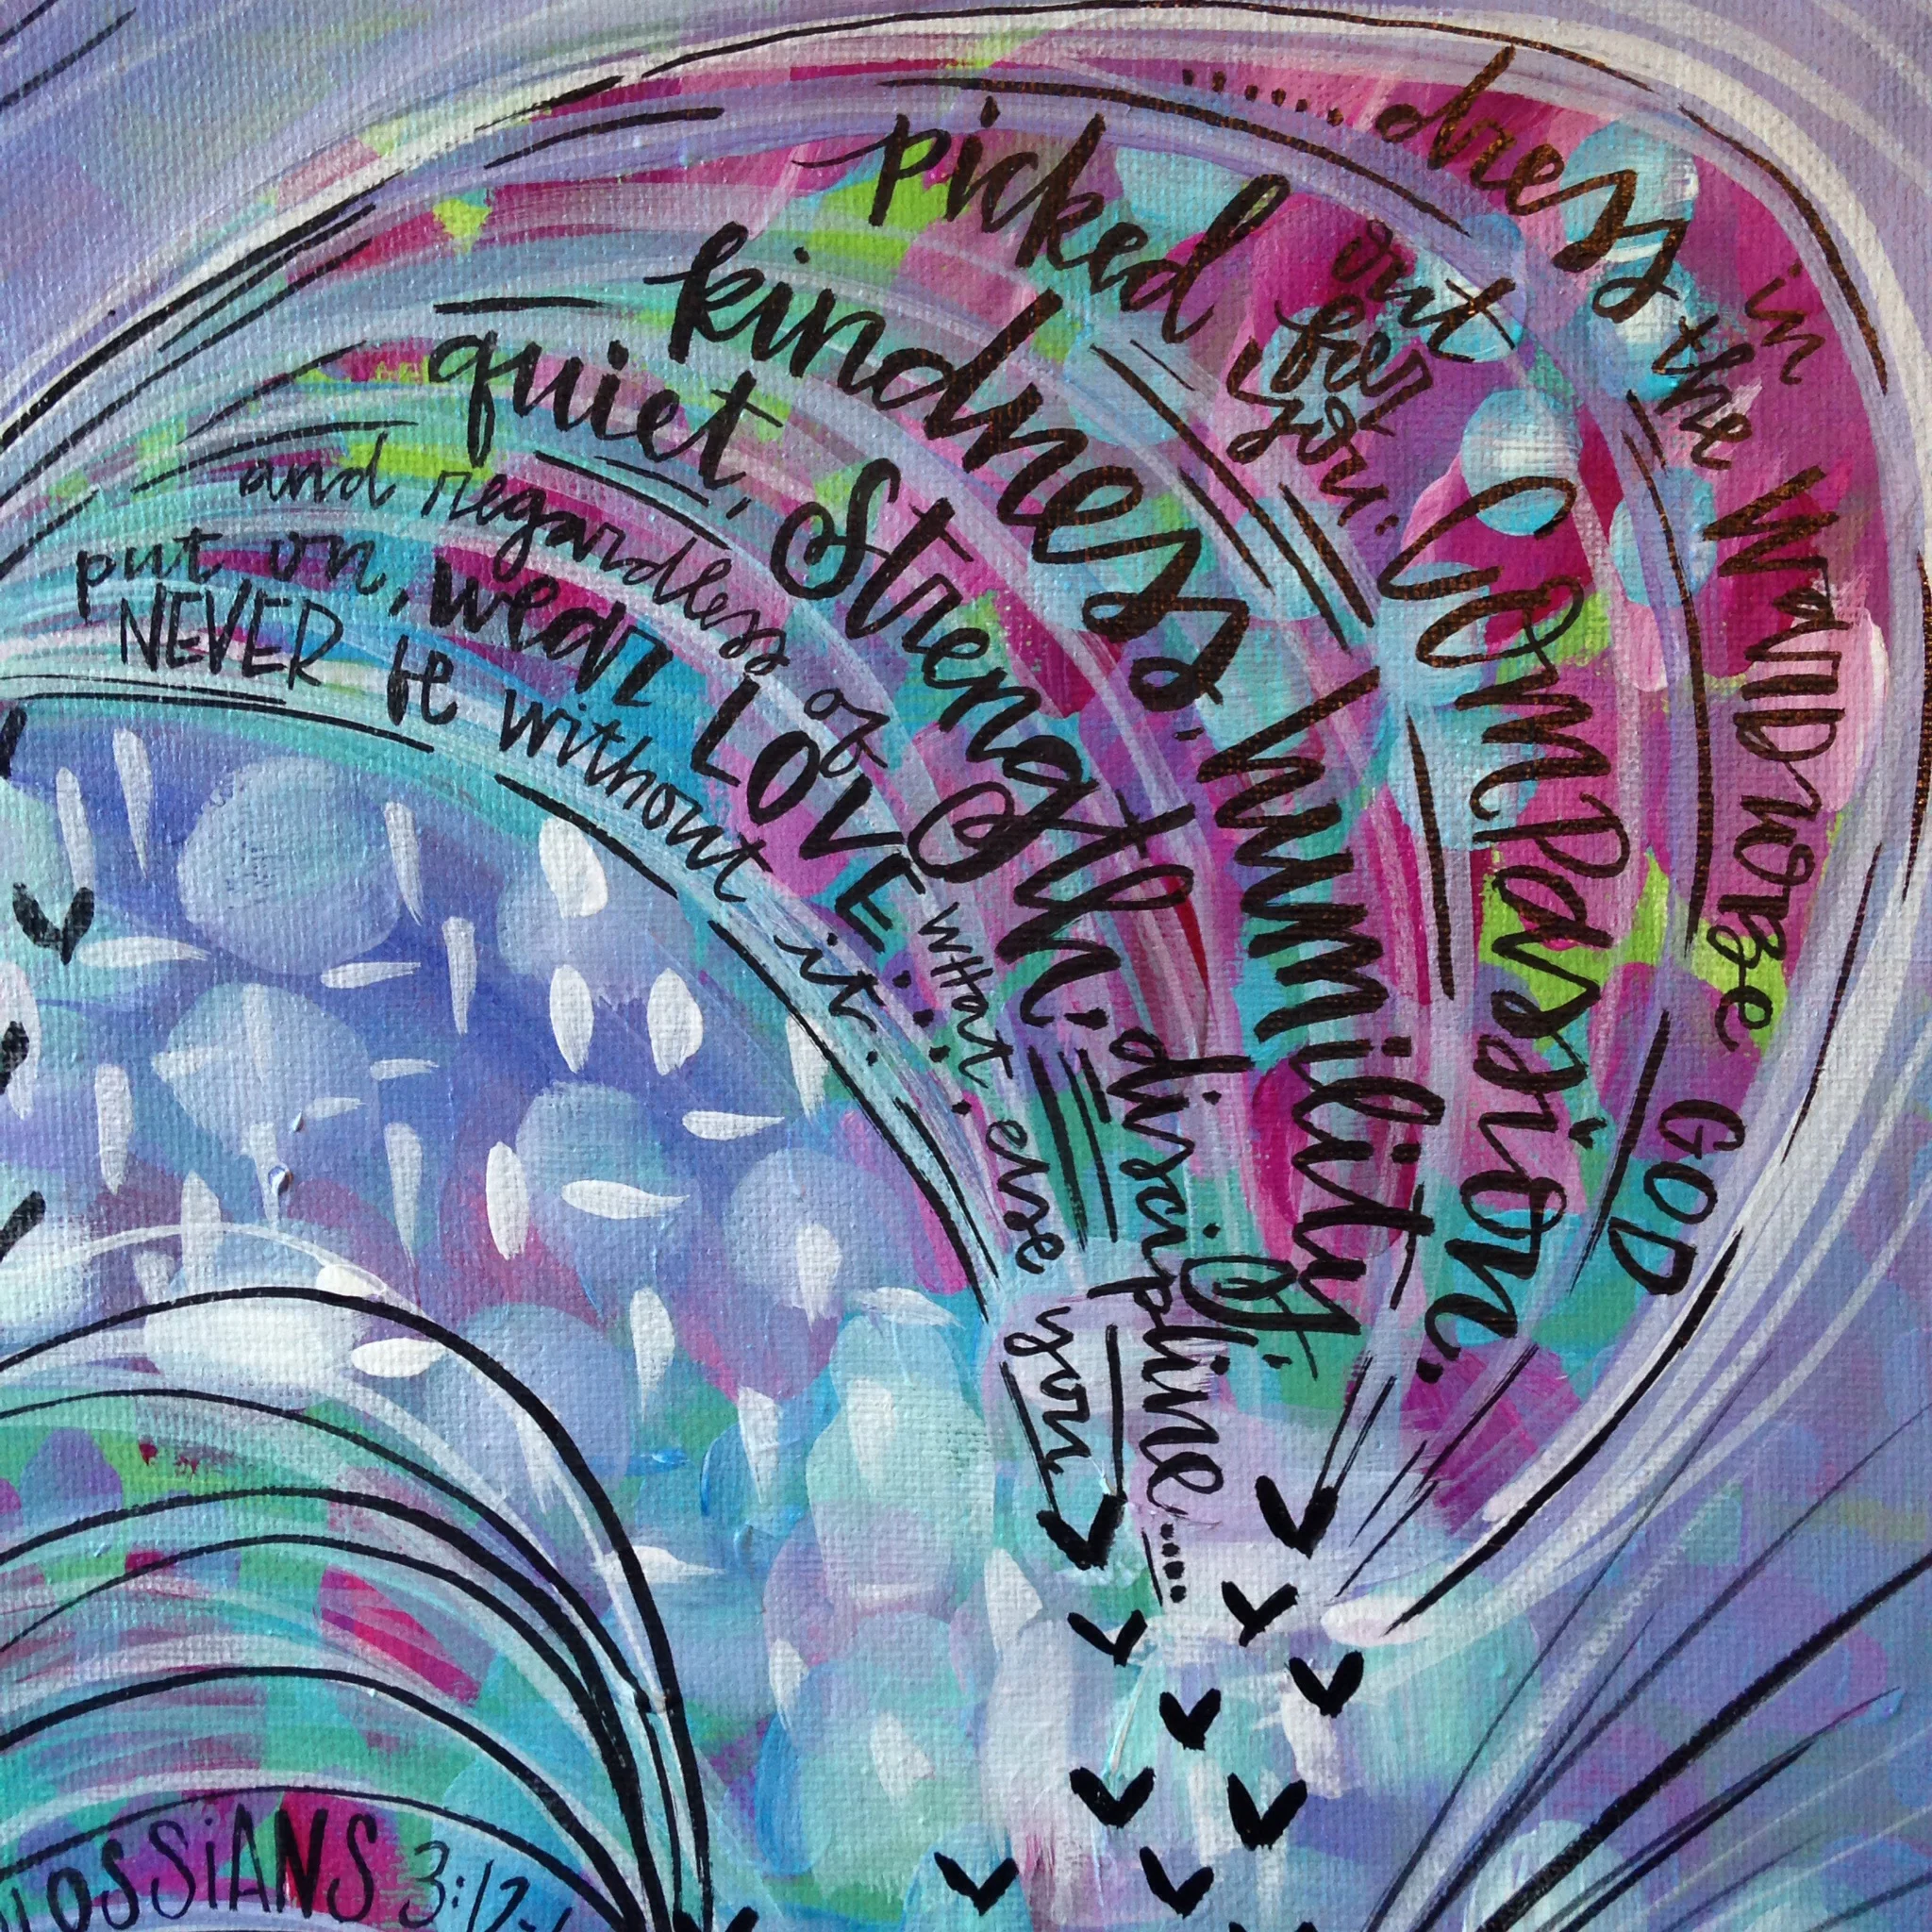 .....dress in the WARDROBE GOD
picked out for you: Compassion.
kindness, humility.
quiet, strength, discipline....
and regardless of what else you
put on, wear LOVE.
NEVER be without it.
LOSSiANS 3:12-